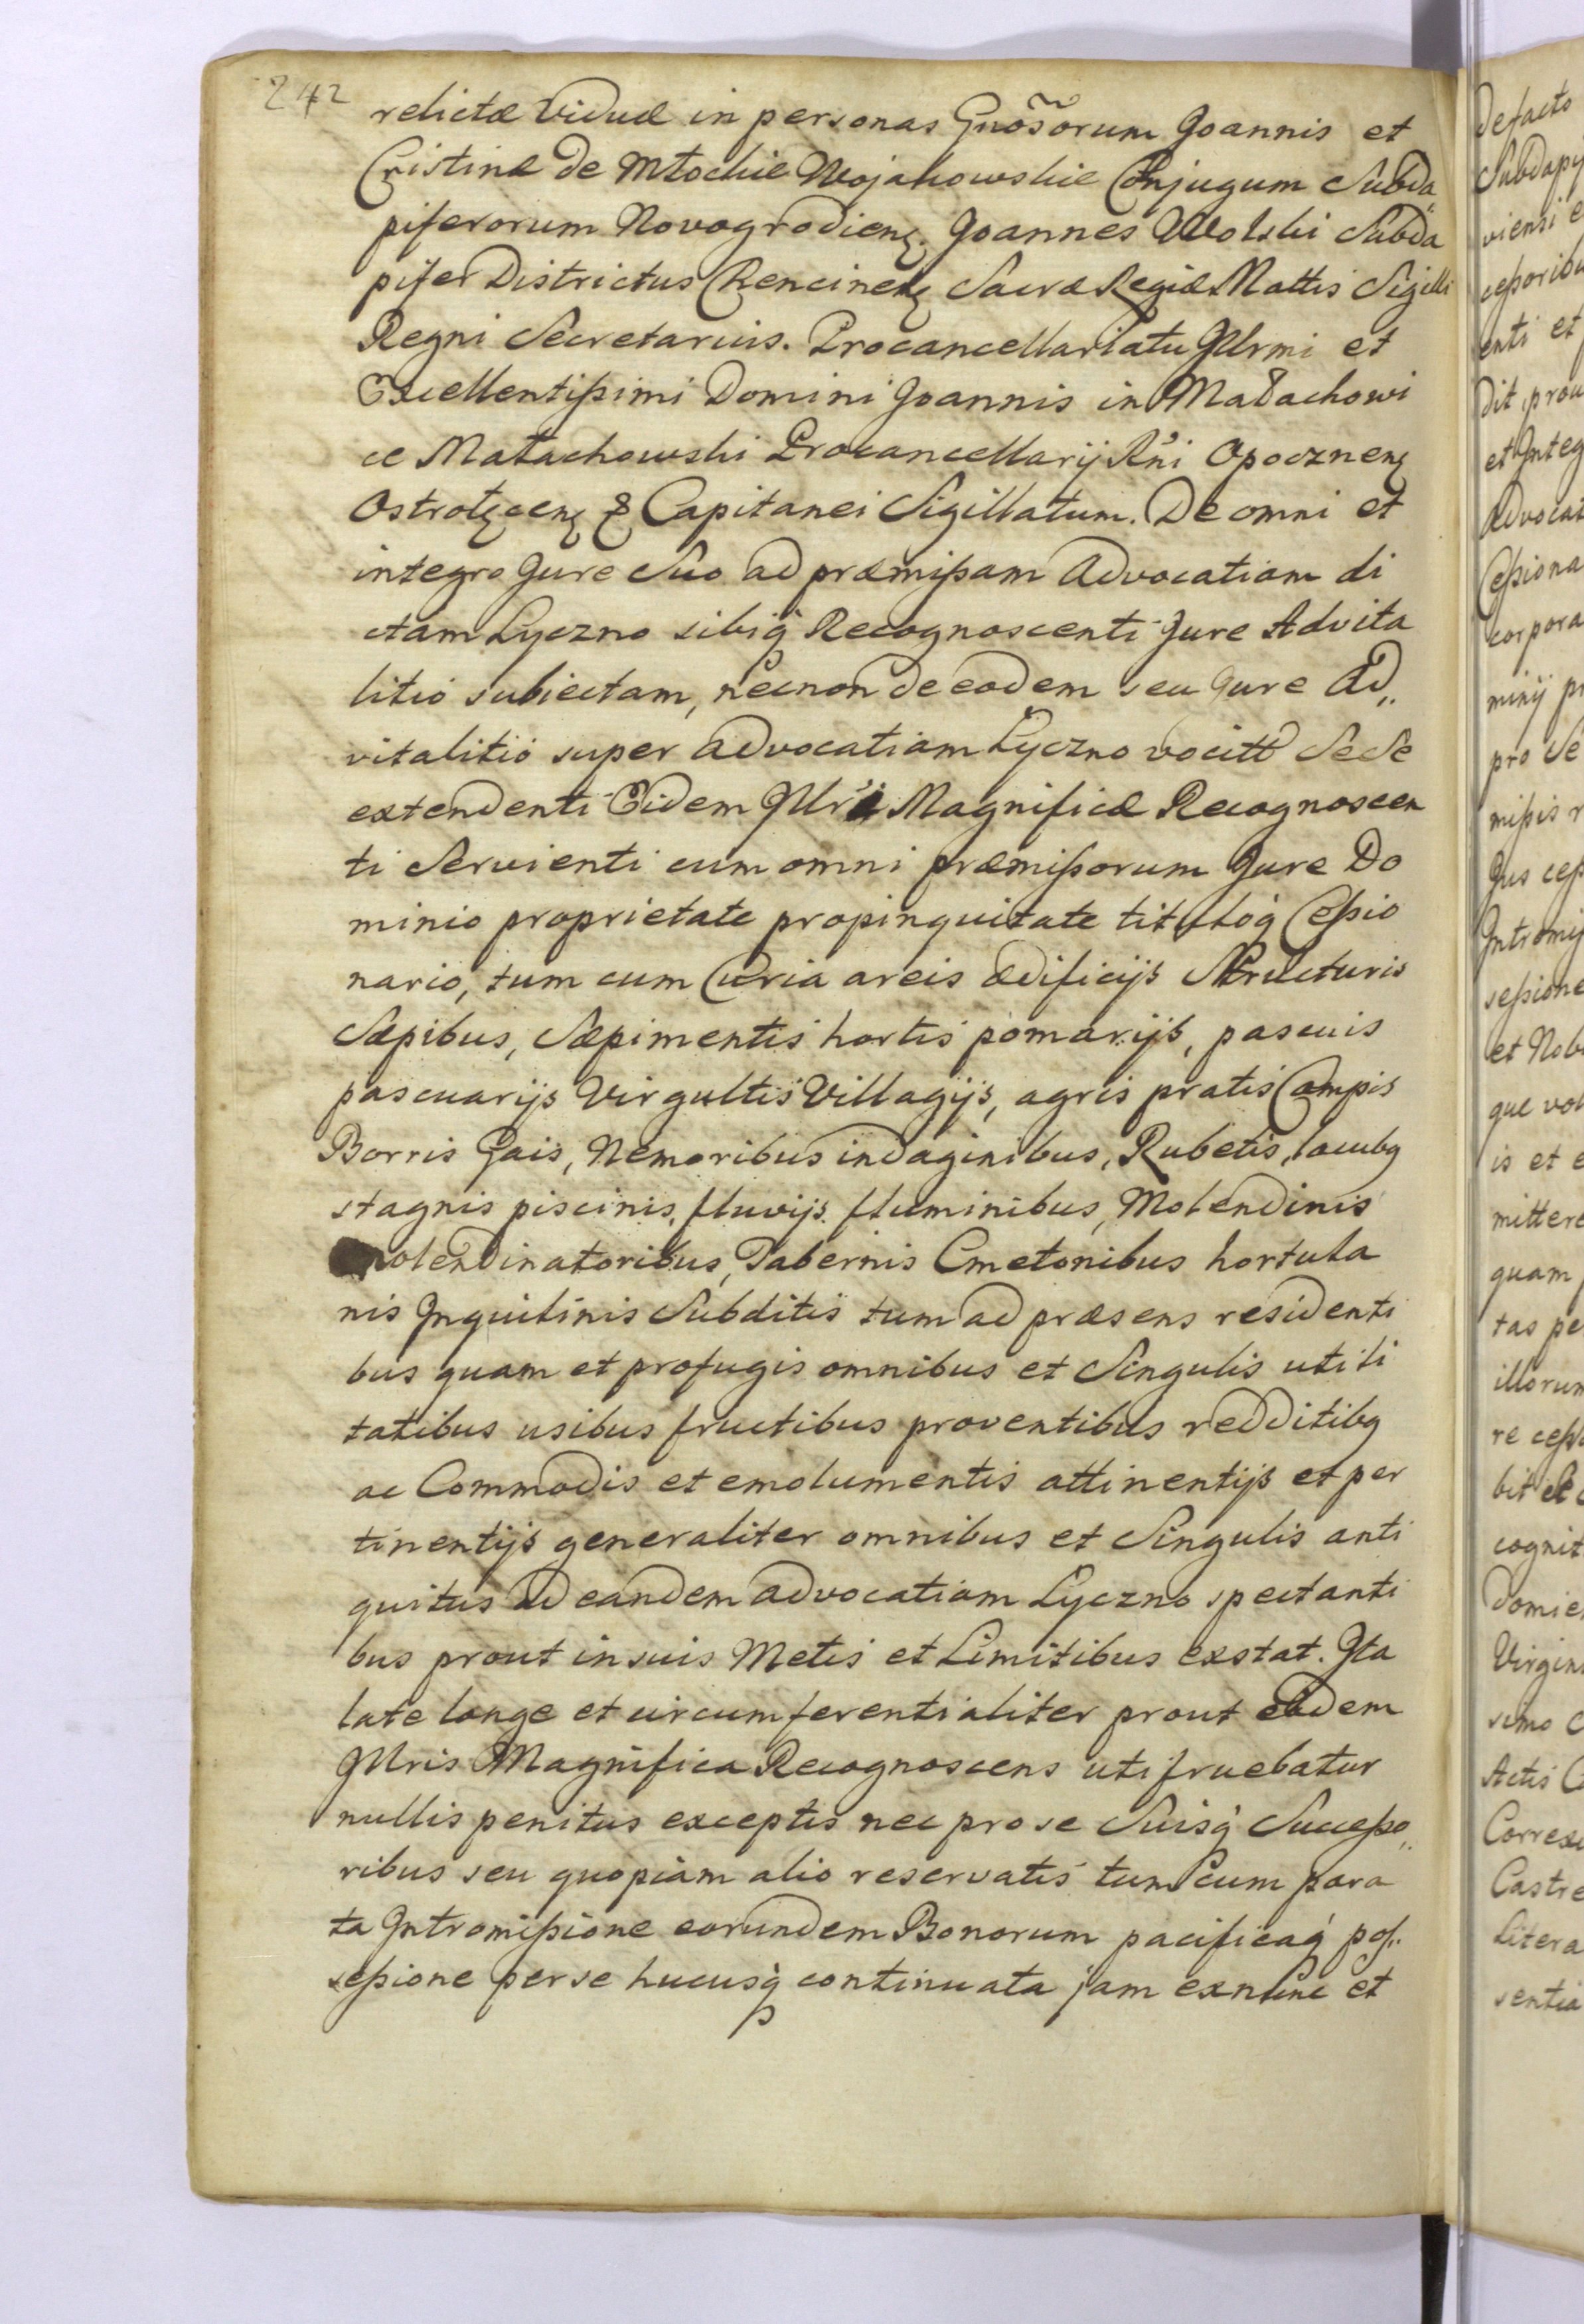 242
relictæ Viduæ in personas Gnõsorum Joannis et
Cristinæ de Młockie Wojakowskie Conjugum Subda„
piferorum Novogrodienꝫ. Joannes Wolski Subda
pifer Districtus Rencinenꝫ Sacræ Regiæ Mattis Sigilli
Regni Secretarius. Procancellariatu Jllrmi et
Excellentißimi Domini Joannis in Małachowi
ce Małachowski Procancellarij Rñi Opocznenꝫ
Ostrołꝫcenꝫ & Capitanei Sigillatum. De omni et
integro Jure Suo ad præmißam Advocatiam di
ctam Lyczno sibiq́ Recognoscenti Jure Advita
litio subiectam, necnon de eodem seu Jure Ad„
vitalitio super advocatiam Lyczno vocitt Sese
extendenti Eidem Jllri Magnificæ Recognoscen
ti Servienti cum omni præmißorum Jure Do
minio proprietate propinquitate tituloq́ Ceßio
nario, tum cum Curia areis ædificijs Structuris
Sæpibus, Sæpimentis hortis pomarijs, pascuis
pascuarijs Virgultis Villagijs, agris pratis Campis
Borris Gais, Nemoribus indaginibus, Rubetis, lacubꝫ
stagnis piscinis, fluvijs fluminibus, Molendinis
Molendinatoribus, Tabernis Cmetonibus hortula
nis Jnquilinis Subditis tum ad præsens residenti
bus quam et profugis omnibus et Singulis utili
tatibus usibus fructibus proventibus redditibꝫ
ac Commodis et emolumentis attinentijs et per
tinentijs generaliter omnibus et Singulis anti
quitus ad eandem advocatiam Lyczno spectanti
bus prout in suis Metis et Limitibus exstat. Jta
late longe et circumferentialiter prout eadem
Jllris Magnifica Recognoscens utifruebatur
nullis penitus exceptis nec pro se Suisq́ Succeßo„
ribus seu quopiam alio reservatis tum cum para
ta Jntromißione eorundem Bonorum pacificaq́ pos„
seßione per se hucusq́ continuata jam exnunc et